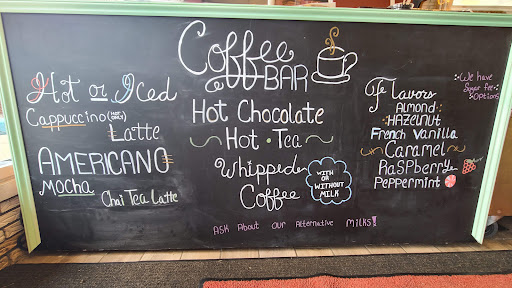 Coffee
BAR
Hot or Iced
Cappuccino (HOT ONLY)
Latte
AMERICANO
Mocha
Chai Tea Latte
Hot Chocolate
Hot • Tea
Whipped
Coffee
WITH
OR
WITHOUT
MILK
ASK About our Alternative MILKS!
Flavors
ALMOND
HAZELNUT
French Vanilla
Caramel
RaSPberry
Peppermint
We have
Sugar free
Options